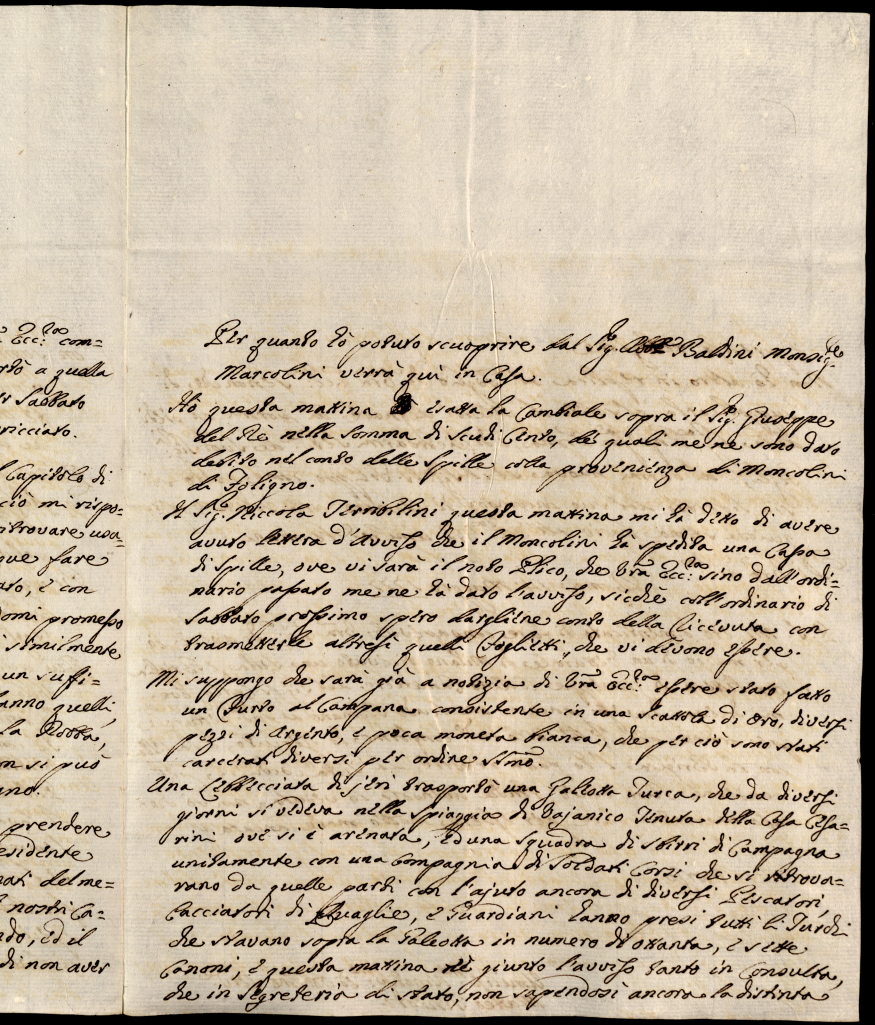 Ecc:za com=
a quella
Sabbato
ricciato.
Capitolo di
ciò mi rispo=
ritrovare usa=
que fare
ato, e con
domi promesso
similmente
un suffi=
anno quelli,
la Robba,
n si può
ano.
prendere
esidente
nati del me=
nostri Ca=
ndo, ed il
di non aver
Per quanto hò potuto scuoprire dal Sig. Abbe Baldini Monsigre
Marcolini verrà quì in Casa.
Hò questa mattina esatta la Cambiale sopra il Sig. Giuseppe
del Rè nella somma di scudi Cento, de quali me ne sono dato
debito nel conto delle Spille colla provenienza di Moncolini
di Foligno.
Il Sig. Niccola Terribilini questa mattina mi hà detto di avere
avuto lettera d'Avviso che il Moncolini hà spedita una Cassa
di Spille, ove vi sarà il noto Plico, che Vra Ecc:za sino dall'ordi=
nario passato me ne hà dato l'avviso, sicchè coll'ordinario di
Sabbato prossimo spero dargliene conto della Ricevuta con
trasmetterle altresì quelli Foglietti, che vi devono essere.
Mi suppongo che sarà già a notizia di Vra Ecc:za essere stato fatto
un Furto al Campana consistente in una Scattola di oro, diversi
pezzi di Argento, e poca moneta bianca, che per ciò sono stati
carcerati diversi per ordine SSmo.
Una Libecciata di jeri trasportò una Galeotta Turca, che da diversi
giorni si vedeva nella spiaggia di Vajanico Tenuta della Casa Cesa=
rini ove si è arenata, ed una squadra di sbirri di Campagna
unitamente con una Compagnia di Soldati Corsi che si ritrova=
vano da quelle parti con l'ajuto ancora di diversi Pescatori,
Cacciatori di Quaglie, e Guardiani hanno presi tutti li Turchi
che stavano sopra la Galeotta in numero di ottanta, e sette
Canoni, e questa mattina nè giunto l'avviso tanto in Consulta,
che in Segreteria di stato, non sapendosi ancora la distinta